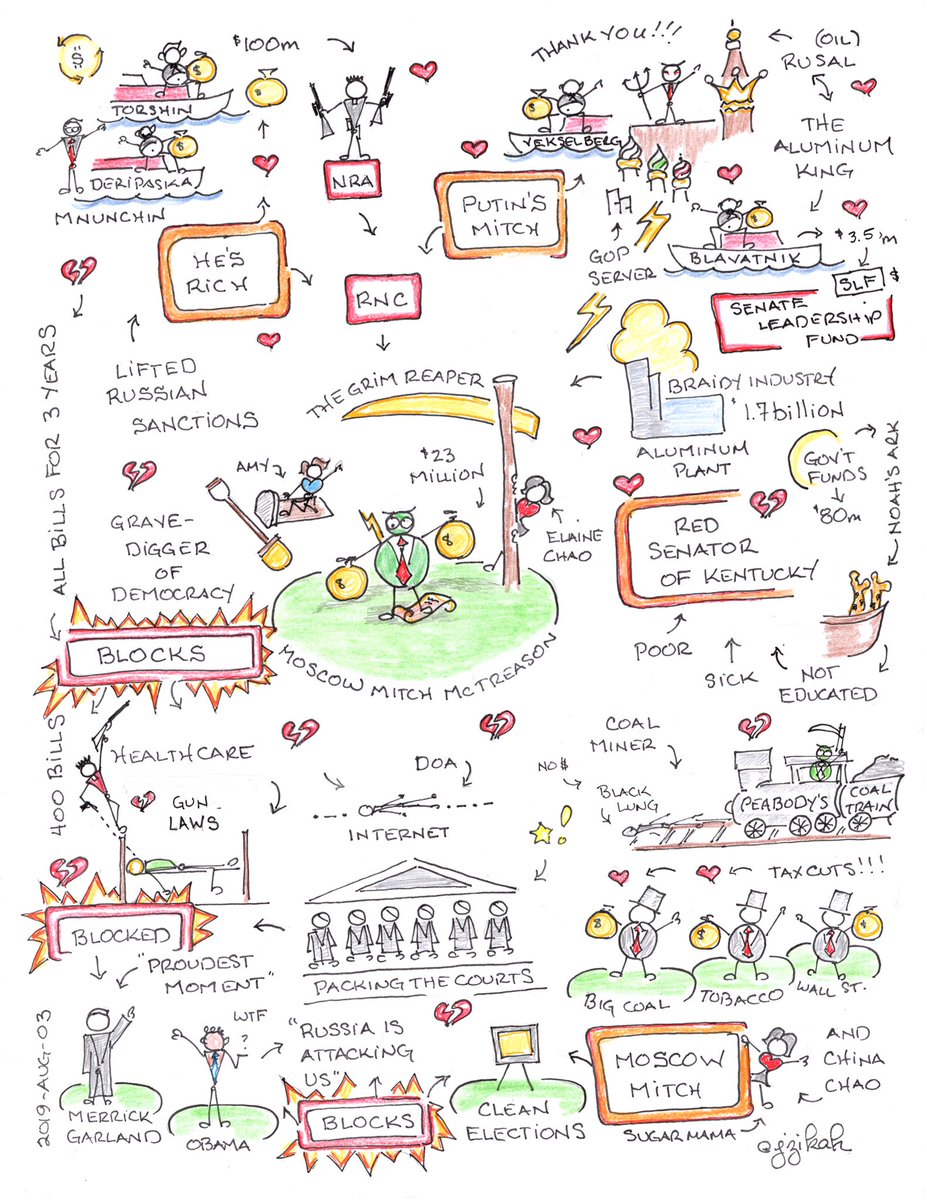 $100m
TORSHIN
DERIPASKA
MNUNCHIN
NRA
THANK YOU!!!
VEKSELBERG
(OIL)
RUSAL
THE
ALUMINUM
KING
BLAVATNIK
$3.5m
SLF $
SENATE
LEADERSHIP
FUND
PUTIN'S
MITCH
GOP
SERVER
HE'S
RICH
RNC
LIFTED
RUSSIAN
SANCTIONS
ALL BILLS FOR 3 YEARS
THE GRIM REAPER
BRAIDY INDUSTRY
$1.7billion
ALUMINUM
PLANT
GOV'T
FUNDS
$80m
NOAH'S ARK
AMY
$23
MILLION
ELAINE
CHAO
GRAVE-
DIGGER
OF
DEMOCRACY
RED
SENATOR
OF KENTUCKY
POOR
SICK
NOT
EDUCATED
BLOCKS
MOSCOW MITCH McTREASON
400 BILLS
HEALTHCARE
GUN
LAWS
DOA
INTERNET
NO$
COAL
MINER
BLACK
LUNG
PEABODY'S
COAL
TRAIN
TAX CUTS!!!
BLOCKED
"PROUDEST
MOMENT"
PACKING THE COURTS
BIG COAL
TOBACCO
WALL ST.
2019-AUG-03
MERRICK
GARLAND
WTF
?
OBAMA
"RUSSIA IS
ATTACKING
US"
BLOCKS
CLEAN
ELECTIONS
MOSCOW
MITCH
SUGAR MAMA
AND
CHINA
CHAO
@jzikah